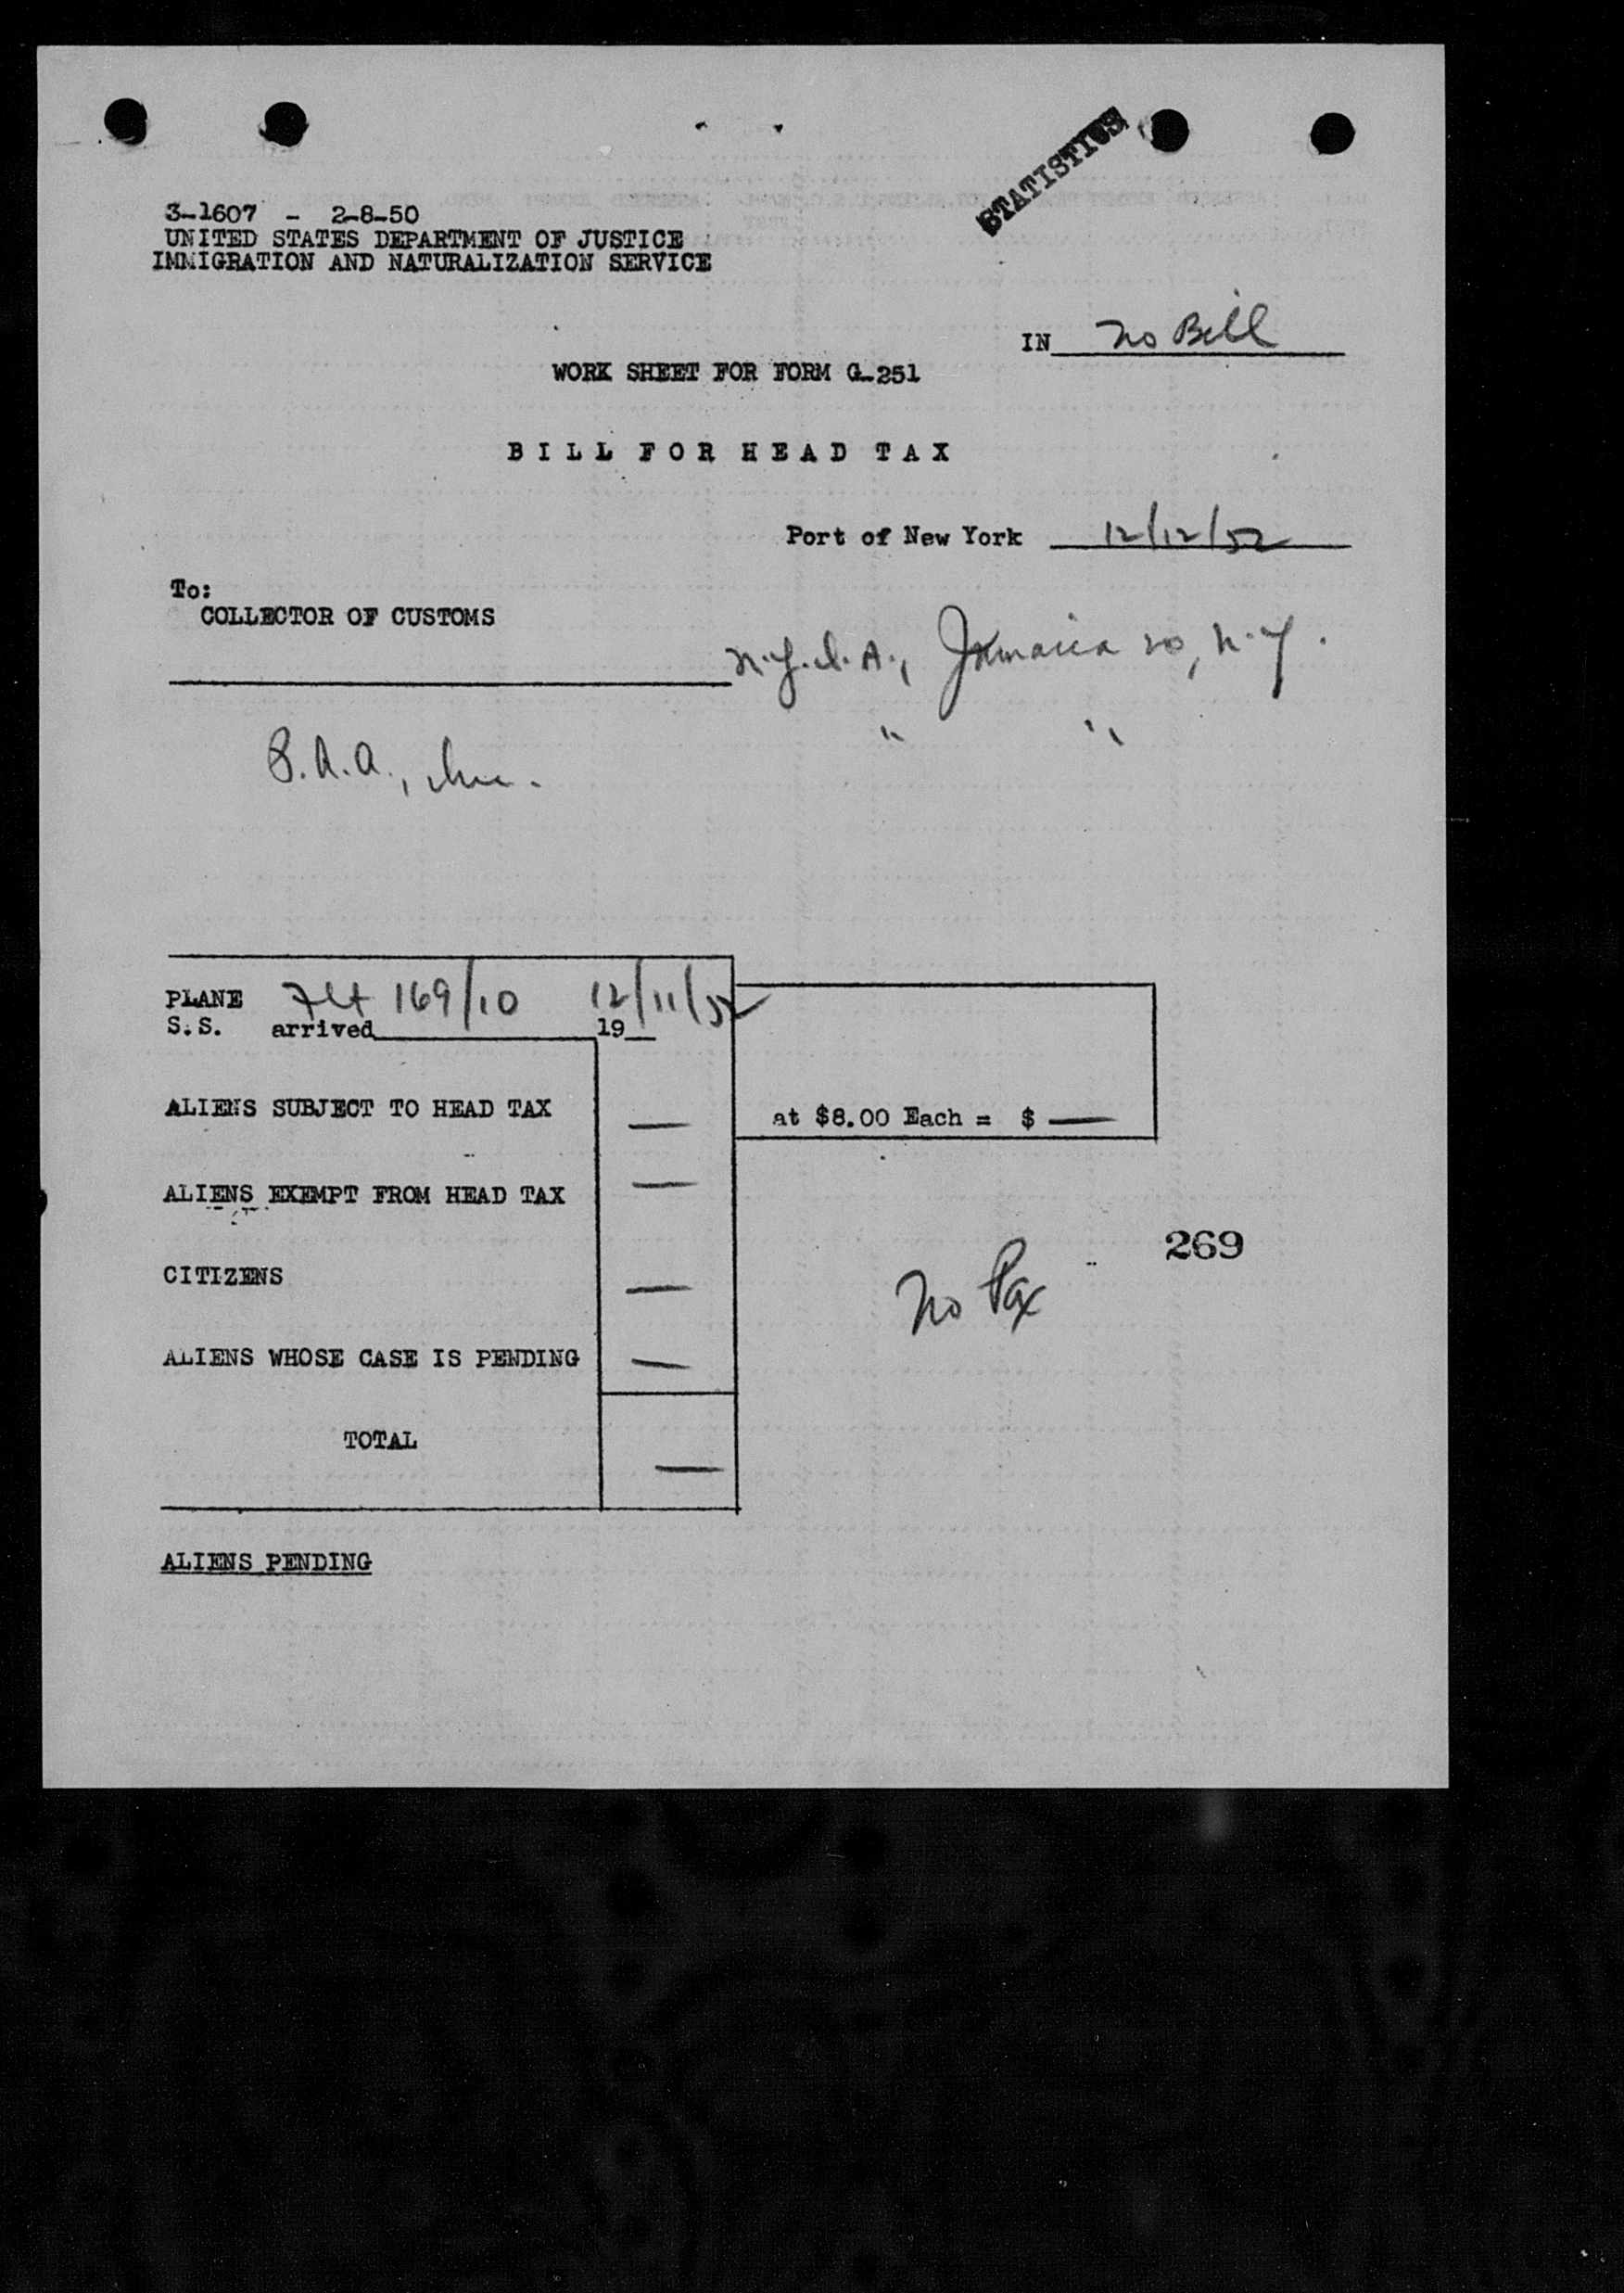 STATISTICS
3-1607 - 2-8-50
UNITED STATES DEPARTMENT OF JUSTICE
IMMIGRATION AND NATURALIZATION SERVICE
IN No Bill
WORK SHEET FOR FORM G-251
BILL FOR HEAD TAX
Port of New York 12/12/52
To:
COLLECTOR OF CUSTOMS
N.Y.I.A., Jamaica 20, N.Y.
" "
S.A.A., Inc.
PLANE Flt 169/10 12/11/52
S.S. arrived 19
ALIENS SUBJECT TO HEAD TAX —
at $8.00 Each = $ —
ALIENS EXEMPT FROM HEAD TAX —
269
CITIZENS —
No Pax
ALIENS WHOSE CASE IS PENDING —
TOTAL —
ALIENS PENDING